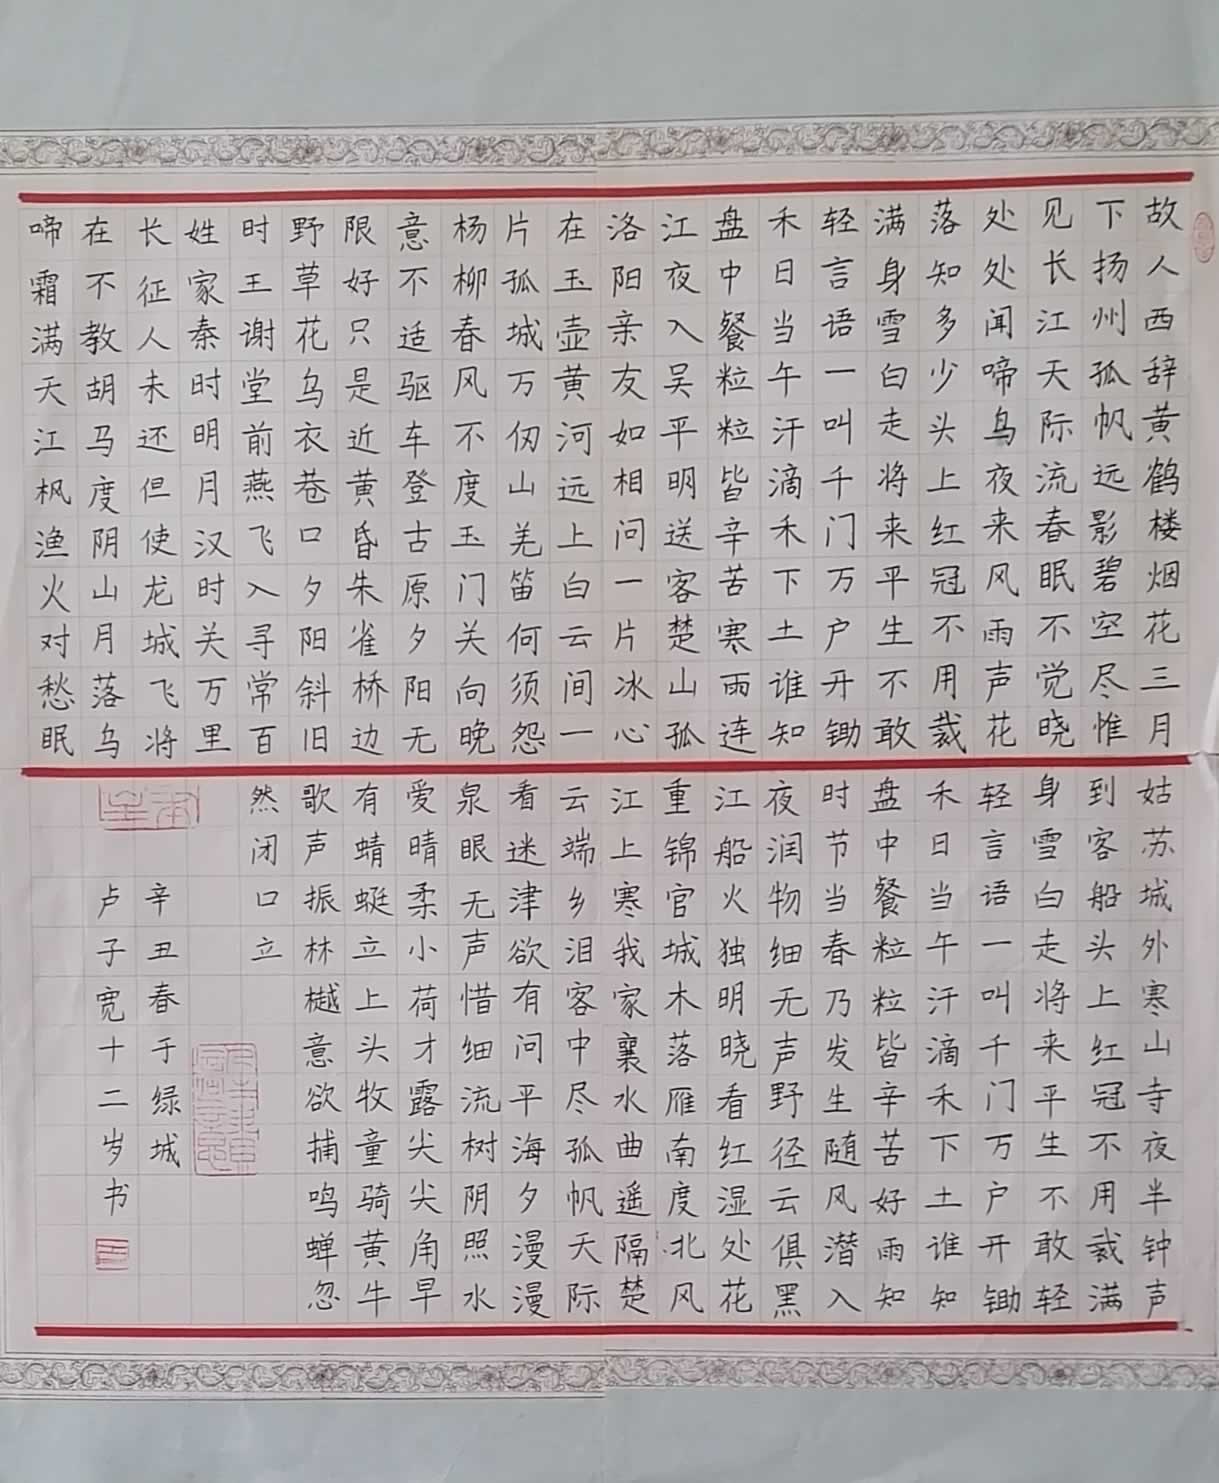 故人西辞黄鹤楼烟花三月
下扬州孤帆远影碧空尽惟
见长江天际流春眠不觉晓
处处闻啼鸟夜来风雨声花
落知多少头上红冠不用裁
满身雪白走将来平生不敢
轻言语一叫千门万户开锄
禾日当午汗滴禾下土谁知
盘中餐粒粒皆辛苦寒雨连
江夜入吴平明送客楚山孤
洛阳亲友如相问一片冰心
在玉壶黄河远上白云间一
片孤城万仞山羌笛何须怨
杨柳春风不度玉门关向晚
意不适驱车登古原夕阳无
限好只是近黄昏朱雀桥边
野草花乌衣巷口夕阳斜旧
时王谢堂前燕飞入寻常百
姓家秦时明月汉时关万里
长征人未还但使龙城飞将
在不教胡马度阴山月落乌
啼霜满天江枫渔火对愁眠
姑苏城外寒山寺夜半钟声
到客船头上红冠不用裁满
身雪白走将来平生不敢轻
轻言语一叫千门万户开锄
禾日当午汗滴禾下土谁知
盘中餐粒粒皆辛苦好雨知
时节当春乃发生随风潜入
夜润物细无声野径云俱黑
江船火独明晓看红湿处花
重锦官城木落雁南度北风
江上寒我家襄水曲遥隔楚
云端乡泪客中尽孤帆天际
看迷津欲有问平海夕漫漫
泉眼无声惜细流树阴照水
爱晴柔小荷才露尖尖角早
有蜻蜓立上头牧童骑黄牛
歌声振林樾意欲捕鸣蝉忽
然闭口立
辛丑春于绿城
卢子宽十二岁书